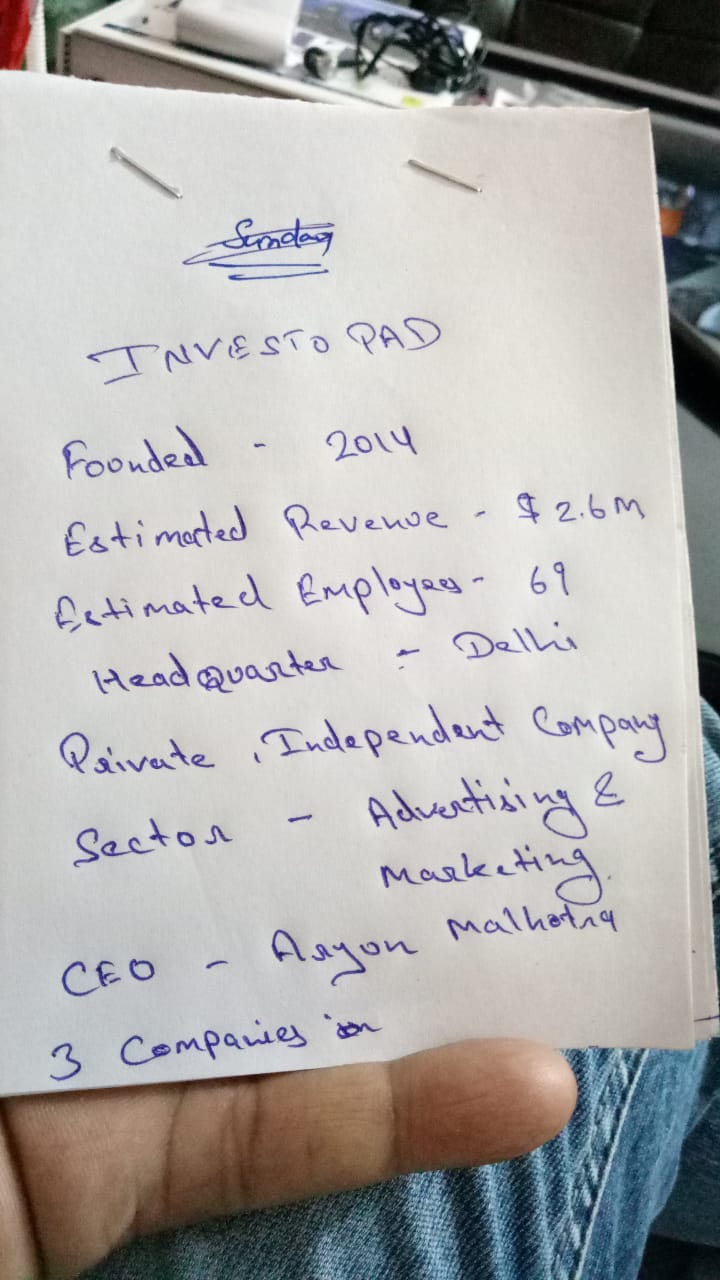 Sunday
INVESTO PAD
Founded - 2014
Estimated Revenue - $ 2.6M
Estimated Employees - 69
Headquarter - Delhi
Private, Independent Company
Sector - Advertising &
Marketing.
CEO - Aryon Malhotra
3 Companies in